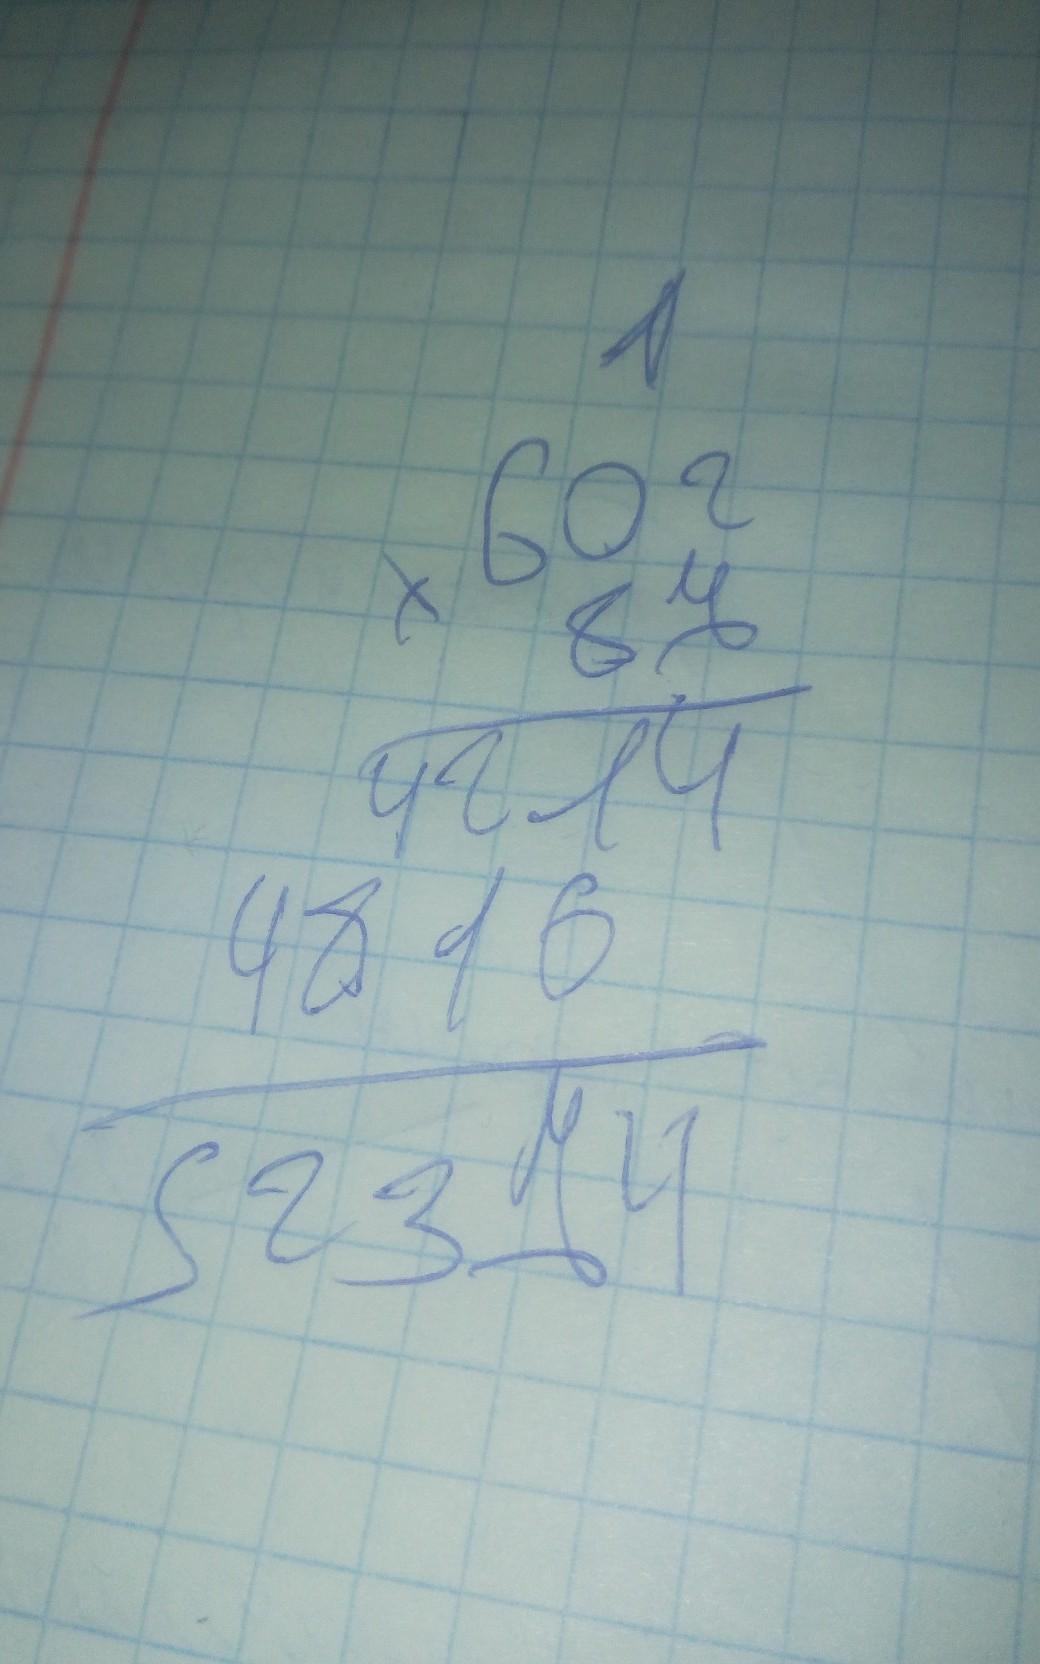 1
602
x 87
4214
4816
52374